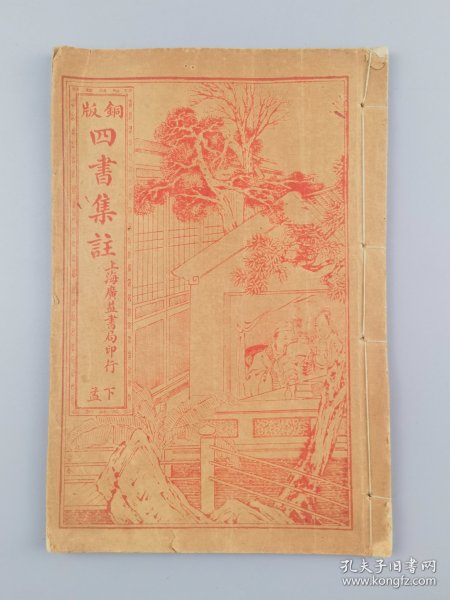 銅版
四書集註
上海廣益書局印行
下孟
孔夫子旧书网
www.kongfz.com